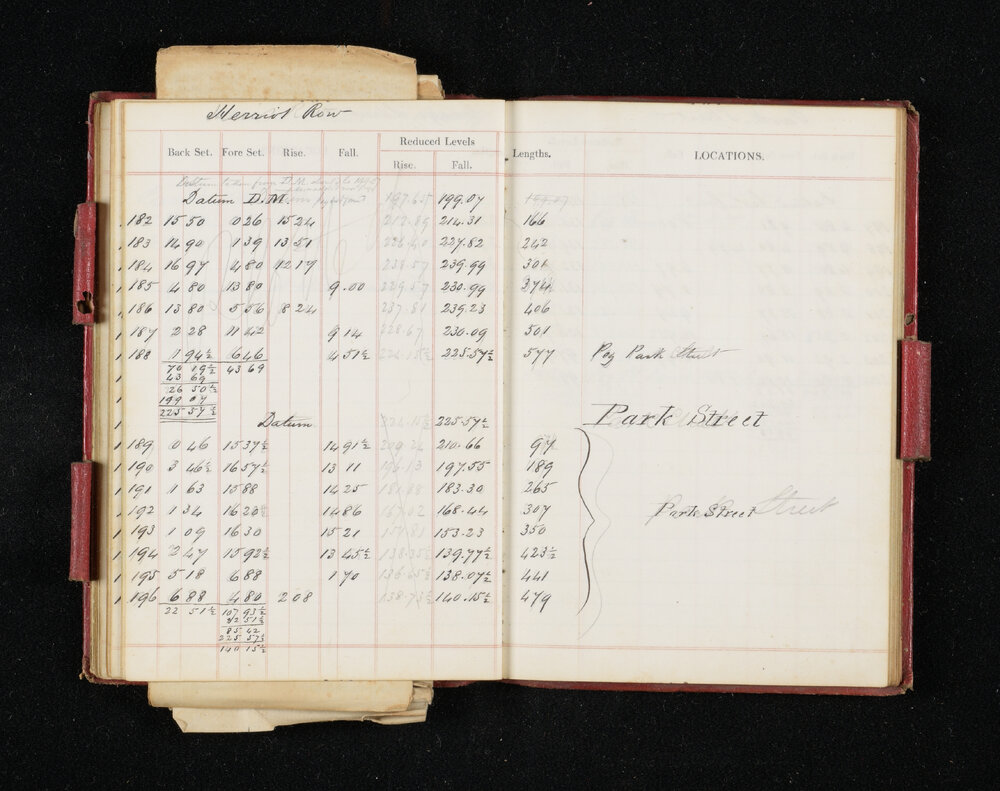 Merriot Row
Reduced Levels
Back Set. Fore Set. Rise. Fall. Rise. Fall. Lengths. LOCATIONS.
Datum taken from D.M.
Datum D.M. 197.65 199.07
182 15 50 0 26 15 24 212.89 214.31 166
183 14 90 1 39 13 51 226.40 227.82 242
184 16 97 4 80 12 17 238.57 239.99 301
185 4 80 13 80 9.00 229.57 230.99 374
186 13 80 5 56 8 24 237.81 239.23 406
187 2 28 11 42 9 14 228.67 230.09 501
188 1 94½ 6 46 4 51½ 224.15½ 225.57½ 577 Peg Park Street
70 19½ 43 69
43 69
26 50½
199 07
225 57½
Datum 224.15½ 225.57½ Park Street
189 0 46 15 37½ 14 91½ 209.24 210.66 97
190 3 46½ 16 57½ 13 11 196.13 197.55 189
191 1 63 15 88 14 25 181.88 183.30 265
192 1 34 16 20 14 86 167.02 168.44 307 Park Street Street
193 1 09 16 30 15 21 151.81 153.23 350
194 2 47 15 92½ 13 45½ 138.35½ 139.77½ 423½
195 5 18 6 88 1 70 136.65½ 138.07½ 441
196 6 88 4 80 2 08 138.73½ 140.15½ 479
22 51½ 107 93½
22 51½
85 42
225 57½
140 15½